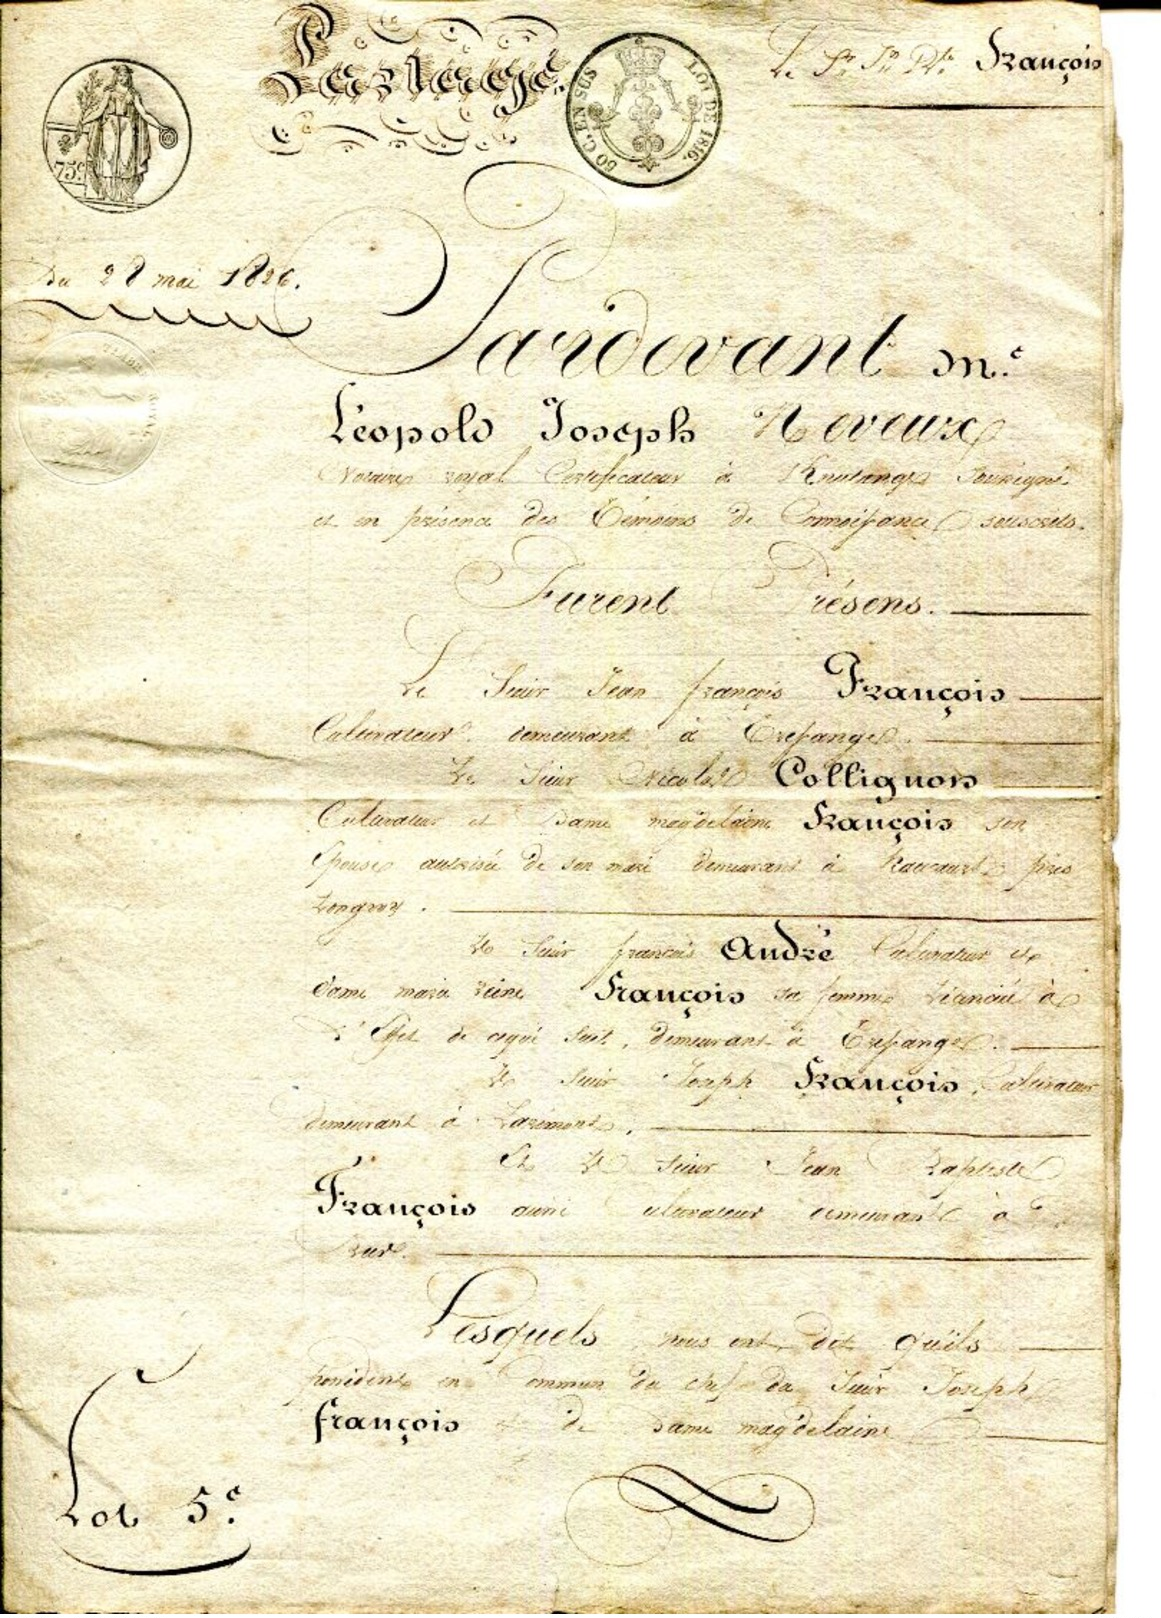 Partage.
75c.
50 C. EN SUS LOI DE 1816.
Le Sr. Jn. Bte. François
Du 28 mai 1826.
Pardevant Me.
Léopold Joseph Neveux
Notaire royal Certificateur à Knutange soussigné
et en présence des Témoins de Connoissance souscrits.
Furent Présens.
Le Sieur Jean françois François
Cultivateur demeurant à Erzange.
Le Sieur Nicolas Collignon
Cultivateur et Dame magdelaine François son
Epouse autorisée de son mari demeurant à près
Longwy.
Le Sieur francois André Cultivateur et
dame marie reine François sa femme licenciée à
l'Effet de cequi suit, demeurant à Erzange.
Le Sieur Joseph François, Cultivateur
demeurant à
Et le Sieur Jean Baptiste
François aussi cultivateur demeurant à
Lesquels nous ont dit qu'ils
possèdent en Commun du chef du Sieur Joseph
françois et de Dame magdelaine
Lot 5e.